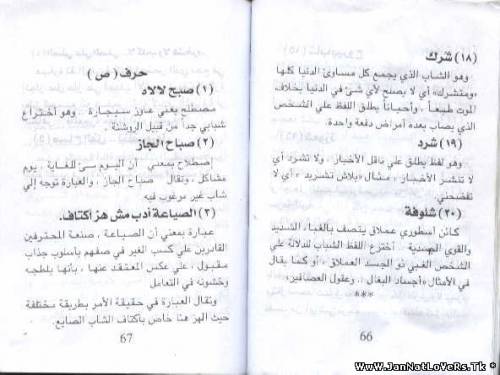 (١٨) شرك
وهو الشاب الذي يجمع كل مساوئ الدنيا كلها
«ومتشرك» أي لا يصلح لأي شئ في الدنيا بخلاف
الموت طبعاً ، وأحياناً يطلق اللفظ على الشخص
الذي يصاب بعده أمراض دفعة واحدة.
(١٩) شرد
وهو لفظ يطلق على ناقل الأخبار . ولا تشرد أي
لا تنشر الأخبار ، مثال «بلاش تشريد » أي لا
تفضحني.
(٢٠) شلوفة
كائن أسطوري عملاق يتصف بالغباء الشديد
والقوي الهمجية . اخترع اللفظ الشباب للدلالة على
الشخص الغبي ذو الجسد العملاق ، أو كما يقال
في الأمثال «أجساد البغال .. وعقول العصافير.
***
66
حرف ( ص )
(١) صبح للالاه
مصطلح يعني عاوز سيجارة . وهو اختراع
شبابي جداً من قبيل الروشنة .
(٢) صباح الجاز
إصطلاح بمعني أن اليوم سئ للغاية ، يوم
مشاكل ، وتقال صباح الجاز ، والعبارة توجه إلي
شاب غير مرغوب فيه
(٣) الصياعة أدب مش هز أكتاف.
عبارة بمعني أن الصياعة ، صنعة المحترفين
القادرين علي كسب الغير في صفهم بأسلوب جذاب
مقبول ، علي عكس المعتقد عنها ، بأنها بلطجه
وخشونه في التعامل
وتقال العبارة في حقيقة الأمر بطريقة مختلفة
حيث الهز هنا خاص بأكتاف الشاب الصايع.
67
WwW.JanNatLoVeRs.Tk *